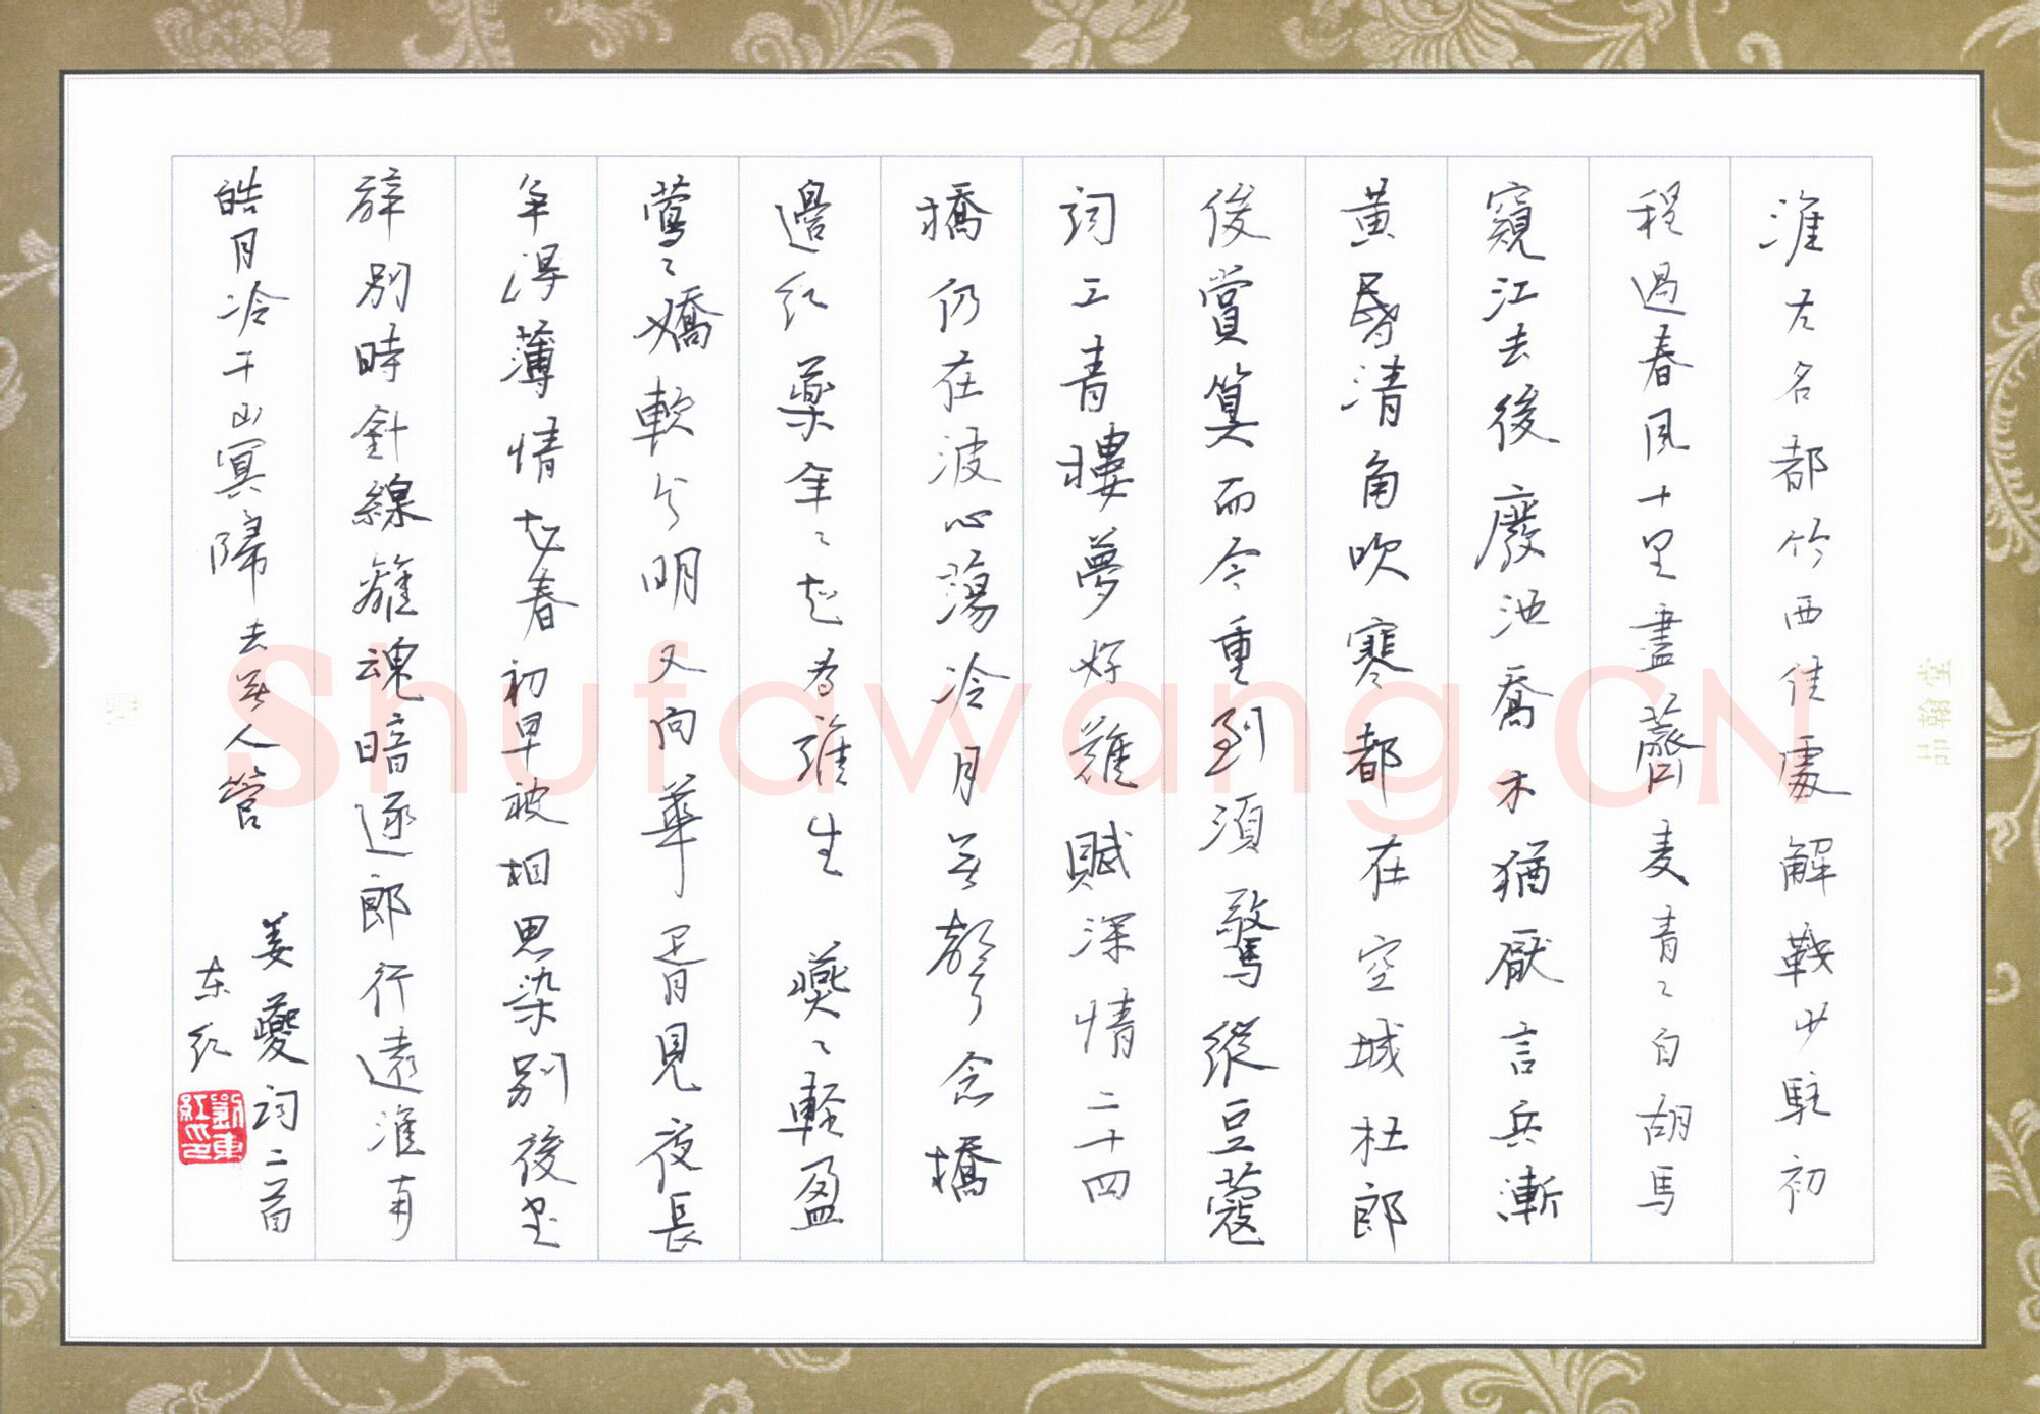 淮左名都竹西佳處解鞍少駐初
程過春風十里盡薺麦青〻自胡馬
窺江去後廢池喬木猶厭言兵漸
黃昏清角吹寒都在空城杜郎
俊賞算而今重到須驚縱豆蔻
詞工青樓夢好難賦深情二十四
橋仍在波心蕩冷月無聲念橋
邊红藥年〻知為誰生 燕〻輕盈
鶯〻嬌軟分明又向華胥見夜長
爭得薄情知春初早被相思染別後書
辭別時針線離魂暗逐郎行遠淮南
皓月冷千山冥歸去無人管
姜夔詞二首
东红
劉東紅印
品翰堂
Shufawang.CN